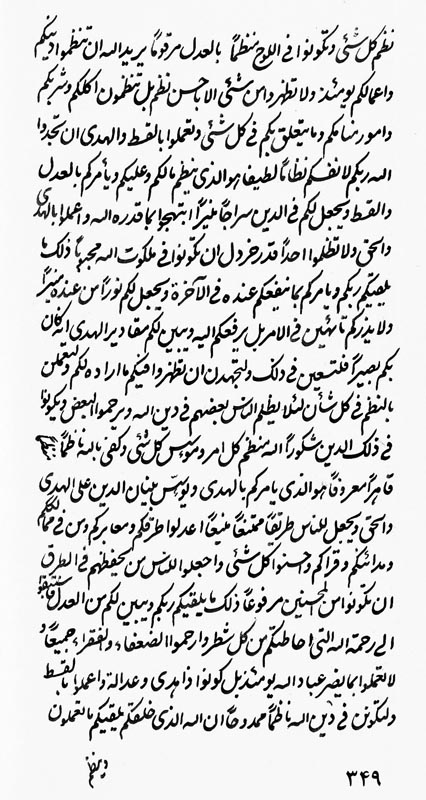 نظم كل شئ و تكونوا فى اللوح منظماً بالعدل مرقوماً يريد الله ان تنظموا دينكم
و اعمالكم يومئذ و لا تظهر و امن شئ الا باحسن نظم بل تنظمون اكلكم و شربكم
و امور بيناكم و ما يتعلق بكم فى كل شئ و تعملوا بالقسط و الهدى ان تجدوا
الله ربكم لانفسكم نظاماً لطيفا هو الذى ينظم مالكم و عليكم و يأمركم بالعدل
و القسط و يجعل لكم فى الدين سراجاً منيراً ابتهجوا بما قدره الله و اعملوا بالهدى
و الحق و لا تظلموا احداً قدر خردل ان تكونوا فى ملكوت الله مجزياً ذلك ما
يلقيكم ربكم و يامركم بما ينفعكم عنده فى الآخرة و يجعل لكم نوراً من عنده مبيراً
و لا يذركم تائهين فى الامر بل يرفعكم اليه و يبين لكم مقادير الهدى انه كان
بكم بصيراً فلتسعين فى ذلك و لتجهدن ان تظهروا فيكم ما اراده لكم و لتعملن
بالنظم فى كل شأن لئلا يظلم الناس بعضهم فى دين الله و يرحموا البعض و يكونوا
فى ذلك الدين مشكوراً الله منظم كل امر و مؤسس كل شئ و كفى بالله ناظماً
قاهراً معروفاً هو الذى يامركم بالهدى و يؤسس بنيان الدين على الهدى
و الحق و يجعل للناس طريقاً ممتنعاً منيعاً اعدلوا طرقكم و معابركم و من فى ممالككم
و مدائنكم و قراكم و حسنوا كل شئ و اجعلوا للناس من يحفظهم فى الطرق
ان تكونوا من المحسنين مرفوعاً ذلك ما يلقيكم ربكم و يبين لكم من العدل فاستبقوا
الى رحمة الله التى احاطتكم من كل شطر و ارحموا الضعفاء و الفقراء جميعاً و
لا تعملوا بما يضر عباد الله يومئذ بل كونوا ذا هدى و عدالة و اعملوا بالقسط
و لتكونن فى دين الله ناظماً ممدوحاً ان الله الذى خلقكم يلقيكم بما تعملون
و ينظم
٣٤٩